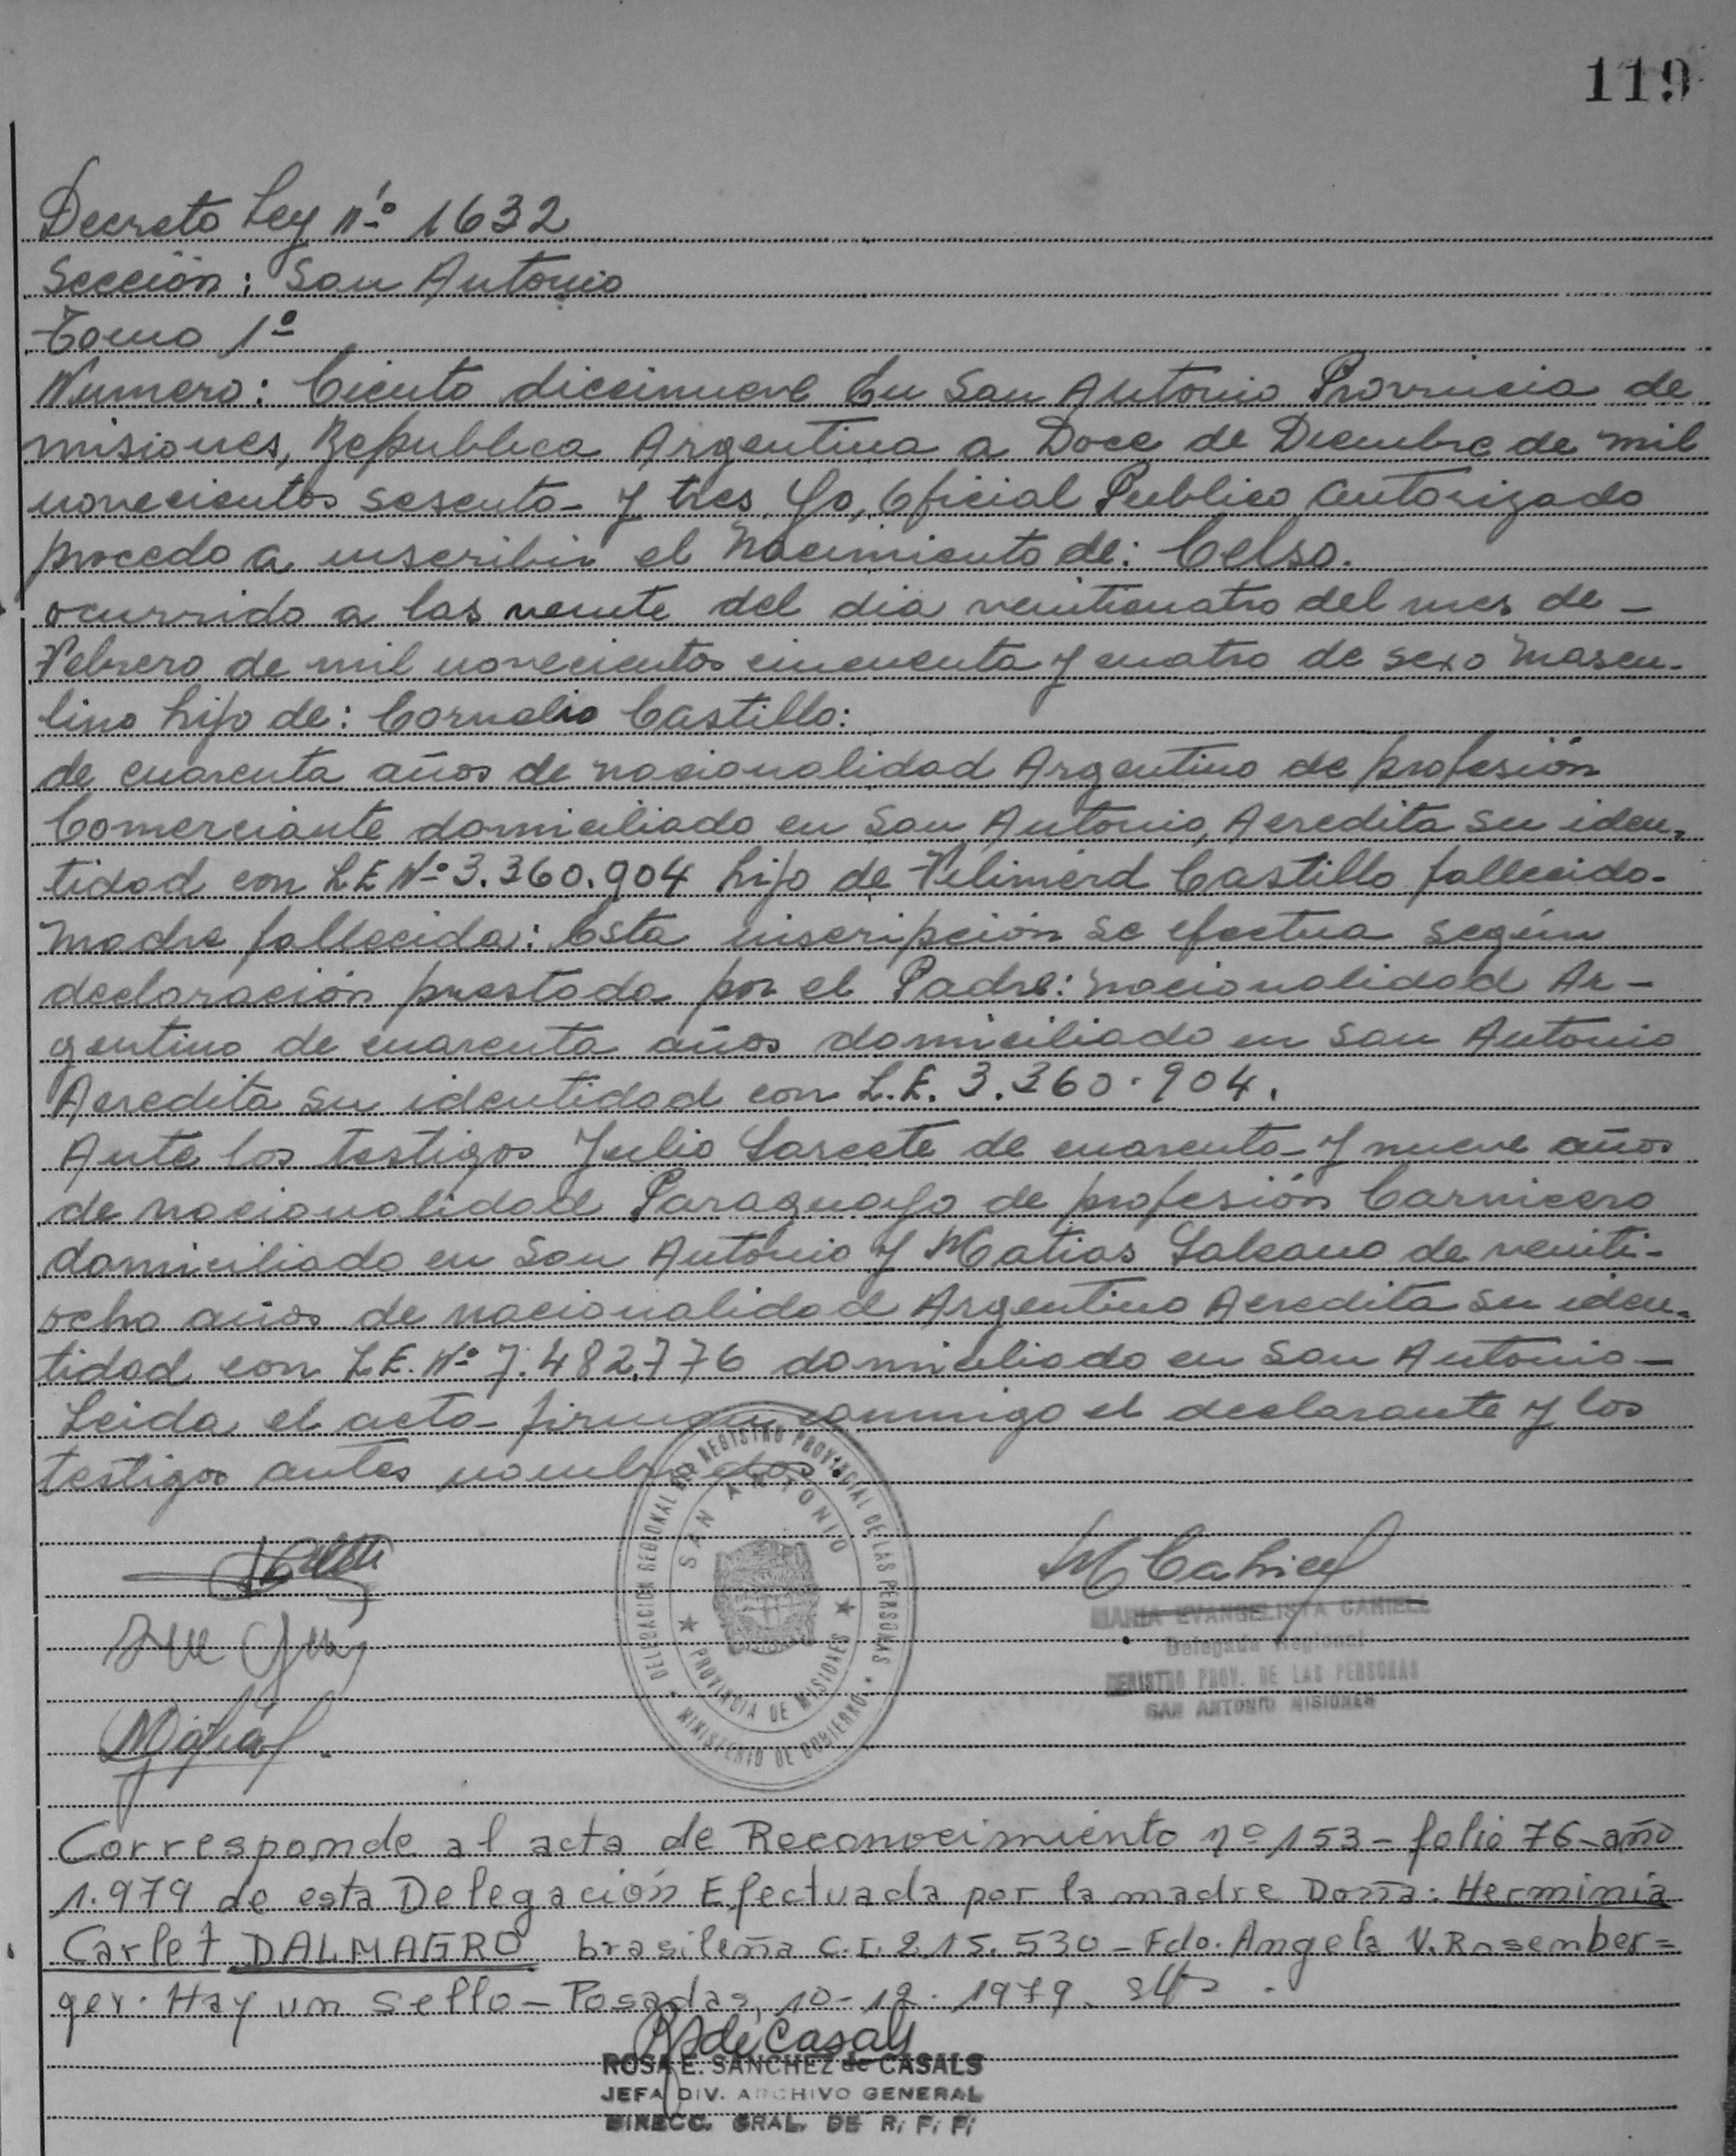 119
Decreto Ley Nº 1632
Sección: San Antonio
Tomo 1º
Numero: Ciento diecinueve En San Antonio Provincia de
misiones, Republica Argentina a Doce de Diciembre de mil
novecientos sesenta y tres, Yo, Oficial Publico autorizado
procedo a inscribir el Nacimiento de: Celso.
ocurrido a las veinte del dia veinticuatro del mes de -
Febrero de mil novecientos cincuenta y cuatro de sexo mascu-
lino hijo de: Cornelio Castillo:
de cuarenta años de nacionalidad Argentino de profesión
Comerciante domiciliado en San Antonio, Acredita su iden-
tidad con L.E Nº 3.360.904 hijo de Castillo fallecido-
madre fallecida: Esta inscripción se efectua según
declaración prestada por el Padre: nacionalidad Ar-
gentino de cuarenta años domiciliado en San Antonio
Acredita su identidad con L.E. 3.360.904.
Ante los testigos Julio de cuarenta y nueve años
de nacionalidad Paraguayo de profesión Carnicero
domiciliado en San Antonio y Matias Galeano de veinti-
ocho años de nacionalidad Argentino Acredita su iden-
tidad con L.E. Nº 7.482.776 domiciliado en San Antonio-
Leida el acta firman conmigo el declarante y los
testigos antes nombrados.
DELEGACION REGIONAL DEL REGISTRO PROVINCIAL DE LAS PERSONAS
SAN ANTONIO
PROVINCIA DE MISIONES
MINISTERIO DE GOBIERNO
M Cahiel
MARIA EVANGELISTA CAHIELL
Delegada Regional
REGISTRO PROV. DE LAS PERSONAS
SAN ANTONIO MISIONES
Corresponde al acta de Reconocimiento nº 153 - folio 76 - año
1.979 de esta Delegación Efectuada por la madre Doña: Herminia
Carlet DALMAGRO brasileña C.I. 215.530 - Fdo. Angela V. Rosenber=
ger. Hay un sello - Posadas, 10-12-1979.
R S de Casals
ROSA E. SANCHEZ de CASALS
JEFA DIV. ARCHIVO GENERAL
DIRECC. GRAL. DE R. P. P.